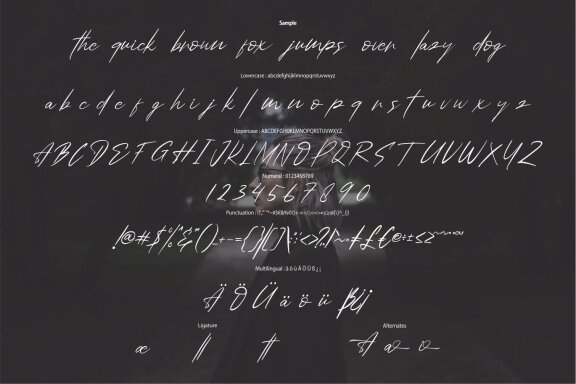 Sample
the quick brown fox jumps over lazy dog
Lowercase : abcdefghijklmnopqrstuvwxyz
a b c d e f g h i j k l m n o p q r s t u v w x y z
Uppercase : ABCDEFGHIJKLMNOPQRSTUVWXYZ
A B C D E F G H I J K L M N O P Q R S T U V W X Y Z
Numeral : 0123456789
1 2 3 4 5 6 7 8 9 0
Punctuation :
Multilingual : ä ö ü Ä Ö Ü ß ¿ ¡
Ä Ö Ü ä ö ü ß ¿ ¡
Ligature Alternates
æ ll tt A a o